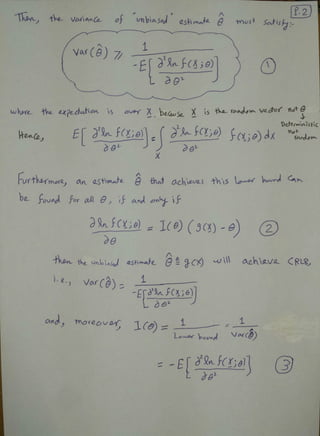 P.2
Then, the variance of "unbiased" estimate θ̂ must satisfy:-
Var(θ̂) ≥ 1 / -E[ ∂² ln f(X;θ) / ∂θ² ] ①
where the expectation is over X, because X is the random vector not θ
↓
Deterministic
not random
Hence, E[ ∂² ln f(X;θ) / ∂θ² ] = ∫_X ∂² ln f(X;θ) / ∂θ² f(X;θ) dX
Furthermore, an estimate θ̂ that achieves this lower bound can
be found for all θ, if and only if
∂ ln f(X;θ) / ∂θ = I(θ) (g(X) - θ) ②
then the unbiased estimate θ̂ ≜ g(X) will achieve CRLB,
i.e., Var(θ̂) = 1 / -E[ ∂² ln f(X;θ) / ∂θ² ]
and, moreover, I(θ) = 1 / Lower bound = 1 / Var(θ̂)
= -E[ ∂² ln f(X;θ) / ∂θ² ] ③